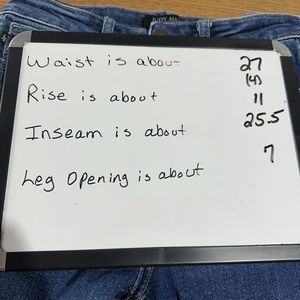 JUDY BLUE
Waist is about 27
(4)
Rise is about 11
Inseam is about 25.5
Leg Opening is about 7